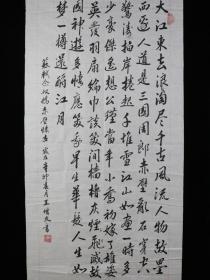 大江東去浪淘盡千古風流人物故壘
西邊人道是三國周郎赤壁亂石穿空
驚濤拍岸捲起千堆雪江山如畫一時多
少豪傑遙想公瑾當年小喬初嫁了雄姿
英發羽扇綸巾談笑間檣櫓灰飛煙滅故
國神遊多情應笑我早生華髮人生如
夢一樽還酹江月
蘇軾念奴嬌赤壁懷古 歲在辛卯月王書